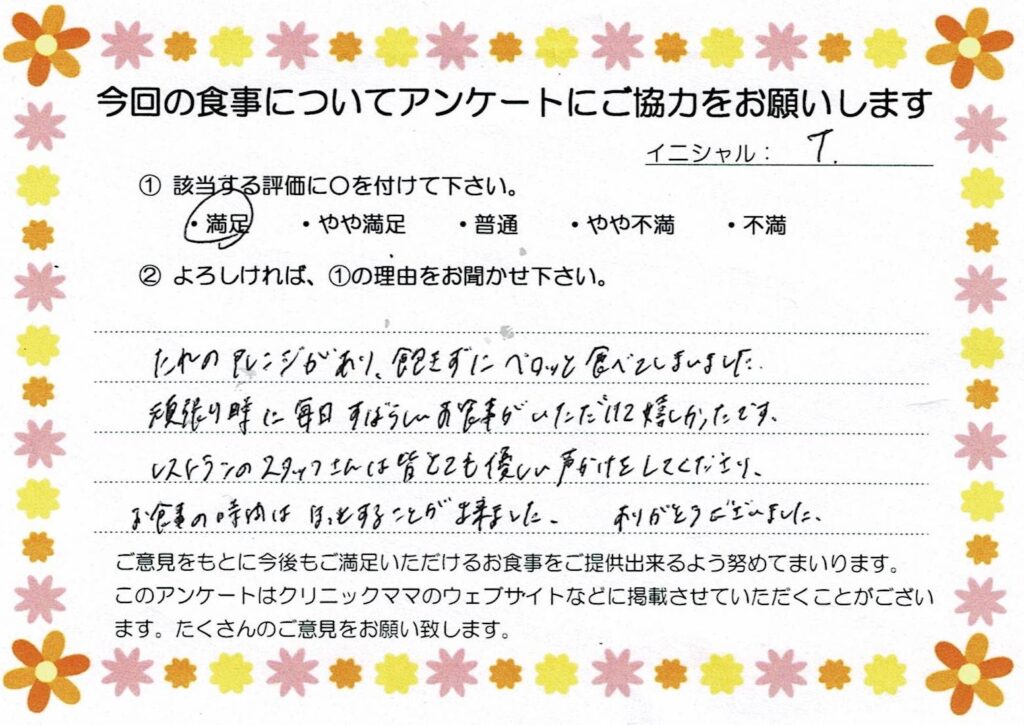 今回の食事についてアンケートにご協力をお願いします
イニシャル： T.
① 該当する評価に〇を付けて下さい。
・満足 ・やや満足 ・普通 ・やや不満 ・不満
② よろしければ、①の理由をお聞かせ下さい。
たれのアレンジがあり、飽きずにペロッと食べてしまいました。
頑張り時に毎日すばらしいお食事がいただけて嬉しかったです。
レストランのスタッフさんは皆とても優しい声かけをしてくださり、
お食事の時間はほっとすることが出来ました。 ありがとうございました。
ご意見をもとに今後もご満足いただけるお食事をご提供出来るよう努めてまいります。
このアンケートはクリニックママのウェブサイトなどに掲載させていただくことがござい
ます。たくさんのご意見をお願い致します。